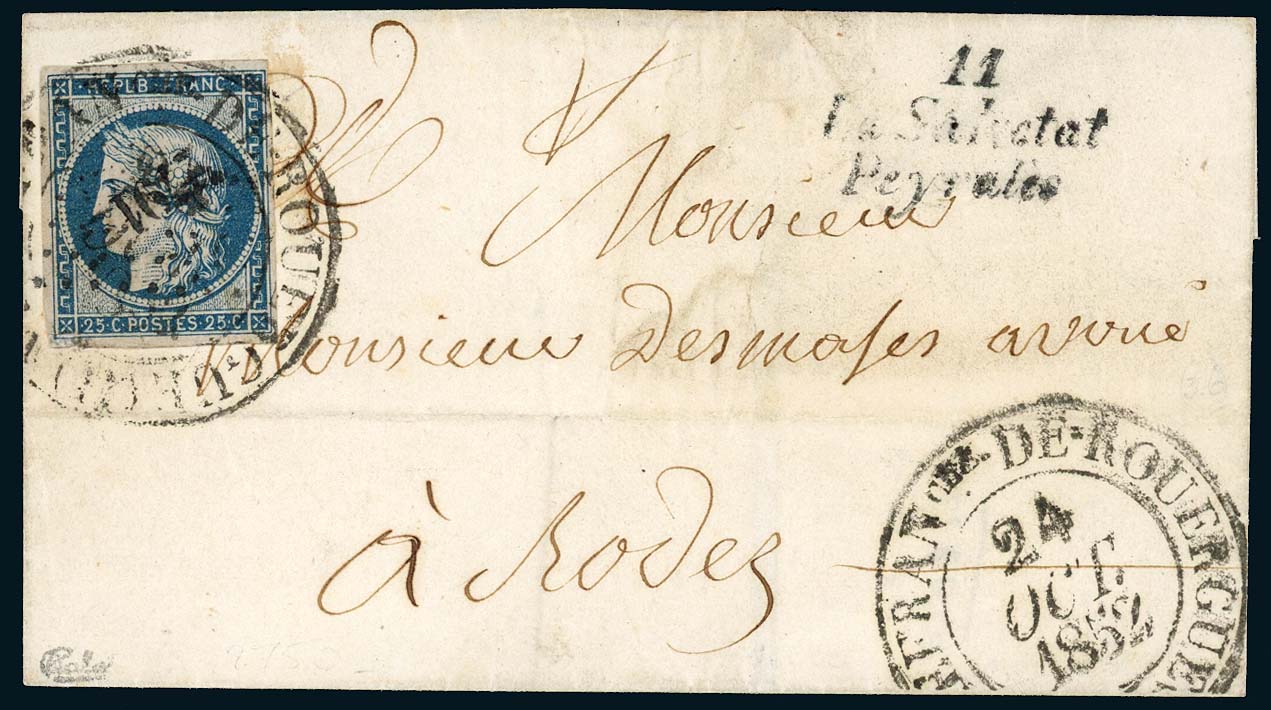 REPUB FRANC
25·C·POSTES·25·C
11
La Salvetat
Peyralès
Monsieur
Monsieur Desmases avoué
à Rodez
EFRANCHE-DE-ROUERGUE
24
OCT.
1852